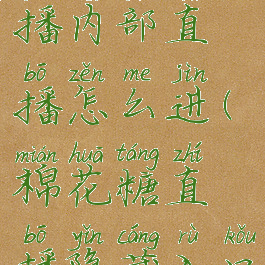 播内部直
bō zěn me jìn
播怎么进（
mián huā táng zhí
棉花糖直
bō yǐn cáng rù kǒu
播隐藏入口